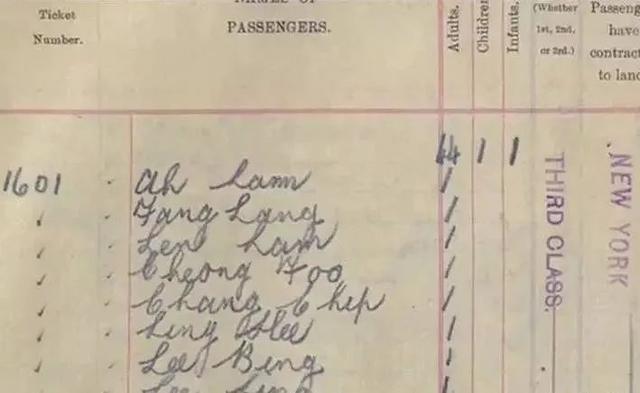 Ticket
Number.
NAMES OF
PASSENGERS.
Adults.
Children
Infants.
(Whether
1st, 2nd,
or 3rd.)
Passeng
have
contract
to land
44 1 1
1601 Ah Lam 1
Fang Lang 1
Len Lam 1
Cheong Foo 1
Chang Chip 1
Ling Hee 1
Lee Bing 1
Lee
THIRD CLASS.
NEW YORK